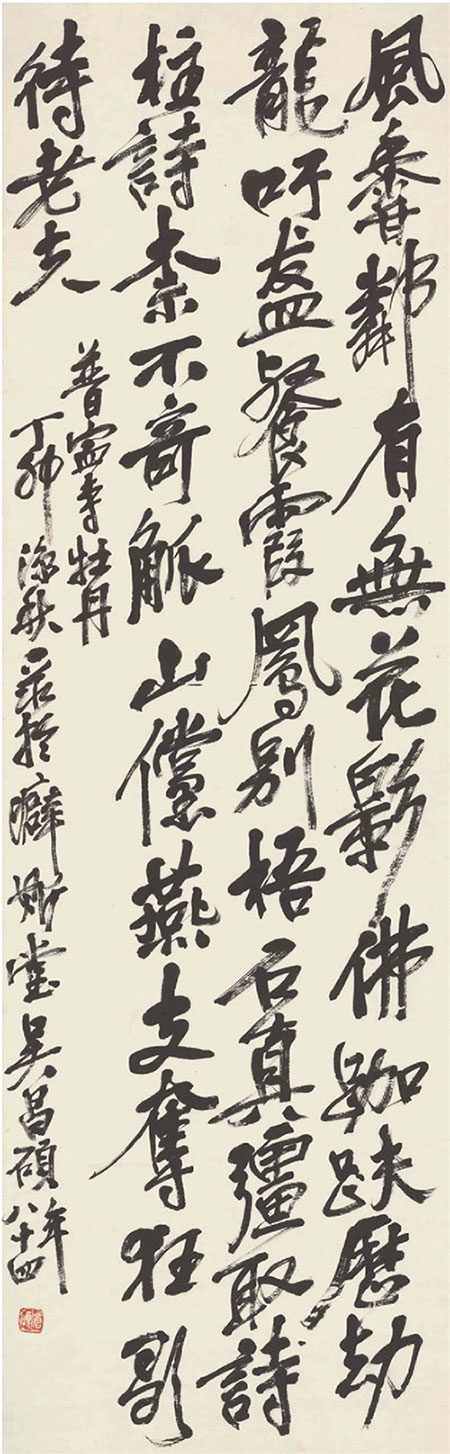 風香鄰有無花影佛跏趺歷劫
龍吁盋餐霞鳳別梧石真彊取詩
柱詩素不奇觚山儻燕支奪狂歌
待老夫
普寧寺牡丹
丁卯深秋彔於癖斯堂吴昌碩年八十四